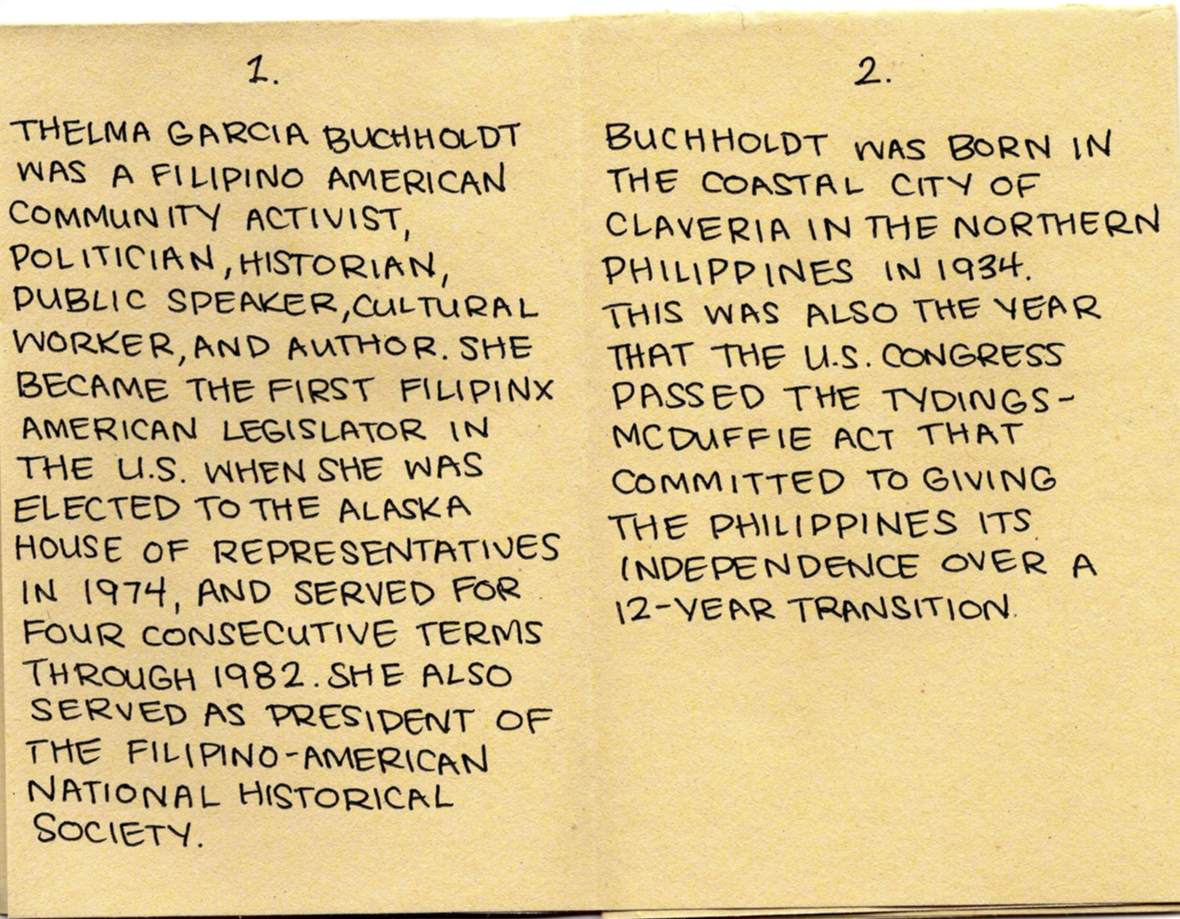 1.
THELMA GARCIA BUCHHOLDT
WAS A FILIPINO AMERICAN
COMMUNITY ACTIVIST,
POLITICIAN, HISTORIAN,
PUBLIC SPEAKER, CULTURAL
WORKER, AND AUTHOR. SHE
BECAME THE FIRST FILIPINX
AMERICAN LEGISLATOR IN
THE U.S. WHEN SHE WAS
ELECTED TO THE ALASKA
HOUSE OF REPRESENTATIVES
IN 1974, AND SERVED FOR
FOUR CONSECUTIVE TERMS
THROUGH 1982. SHE ALSO
SERVED AS PRESIDENT OF
THE FILIPINO-AMERICAN
NATIONAL HISTORICAL
SOCIETY.
2.
BUCHHOLDT WAS BORN IN
THE COASTAL CITY OF
CLAVERIA IN THE NORTHERN
PHILIPPINES IN 1934.
THIS WAS ALSO THE YEAR
THAT THE U.S. CONGRESS
PASSED THE TYDINGS-
MCDUFFIE ACT THAT
COMMITTED TO GIVING
THE PHILIPPINES ITS
INDEPENDENCE OVER A
12-YEAR TRANSITION.